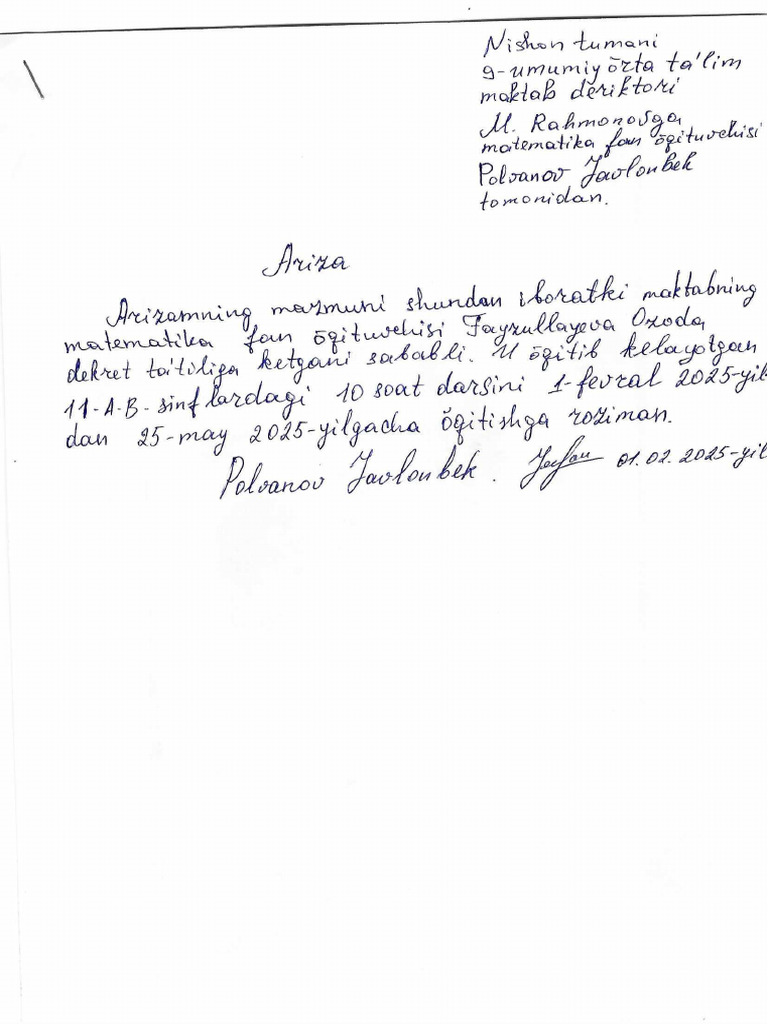 Nishon tumani
9-umumiy õrta ta'lim
maktab deriktori
M. Rahmonovga
matematika fan õqituvchisi
Polvanov Javlonbek
tomonidan.
Ariza
Arizamning mazmuni shundan iboratki maktabning
matematika fan õqituvchisi Fayzullayeva Ozoda
dekret ta'tiliga ketgani sababli. U õqitib kelayotgan
11-A-B-sinflardagi 10 soat darsini 1-fevral 2025-yil
dan 25-may 2025-yilgacha õqitishga roziman.
Polvanov Javlonbek. 01.02.2025-yil